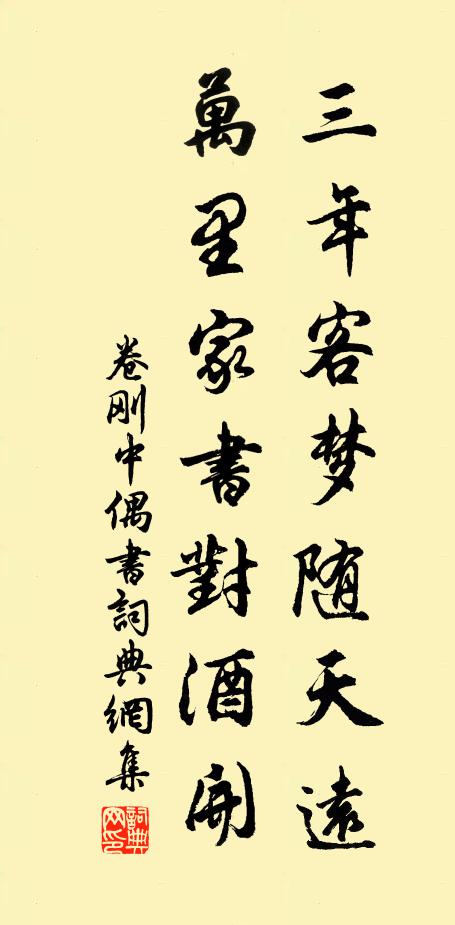 三年客梦随天远
萬里家書對酒開
卷剛中偶書詞典網集
詞典網印